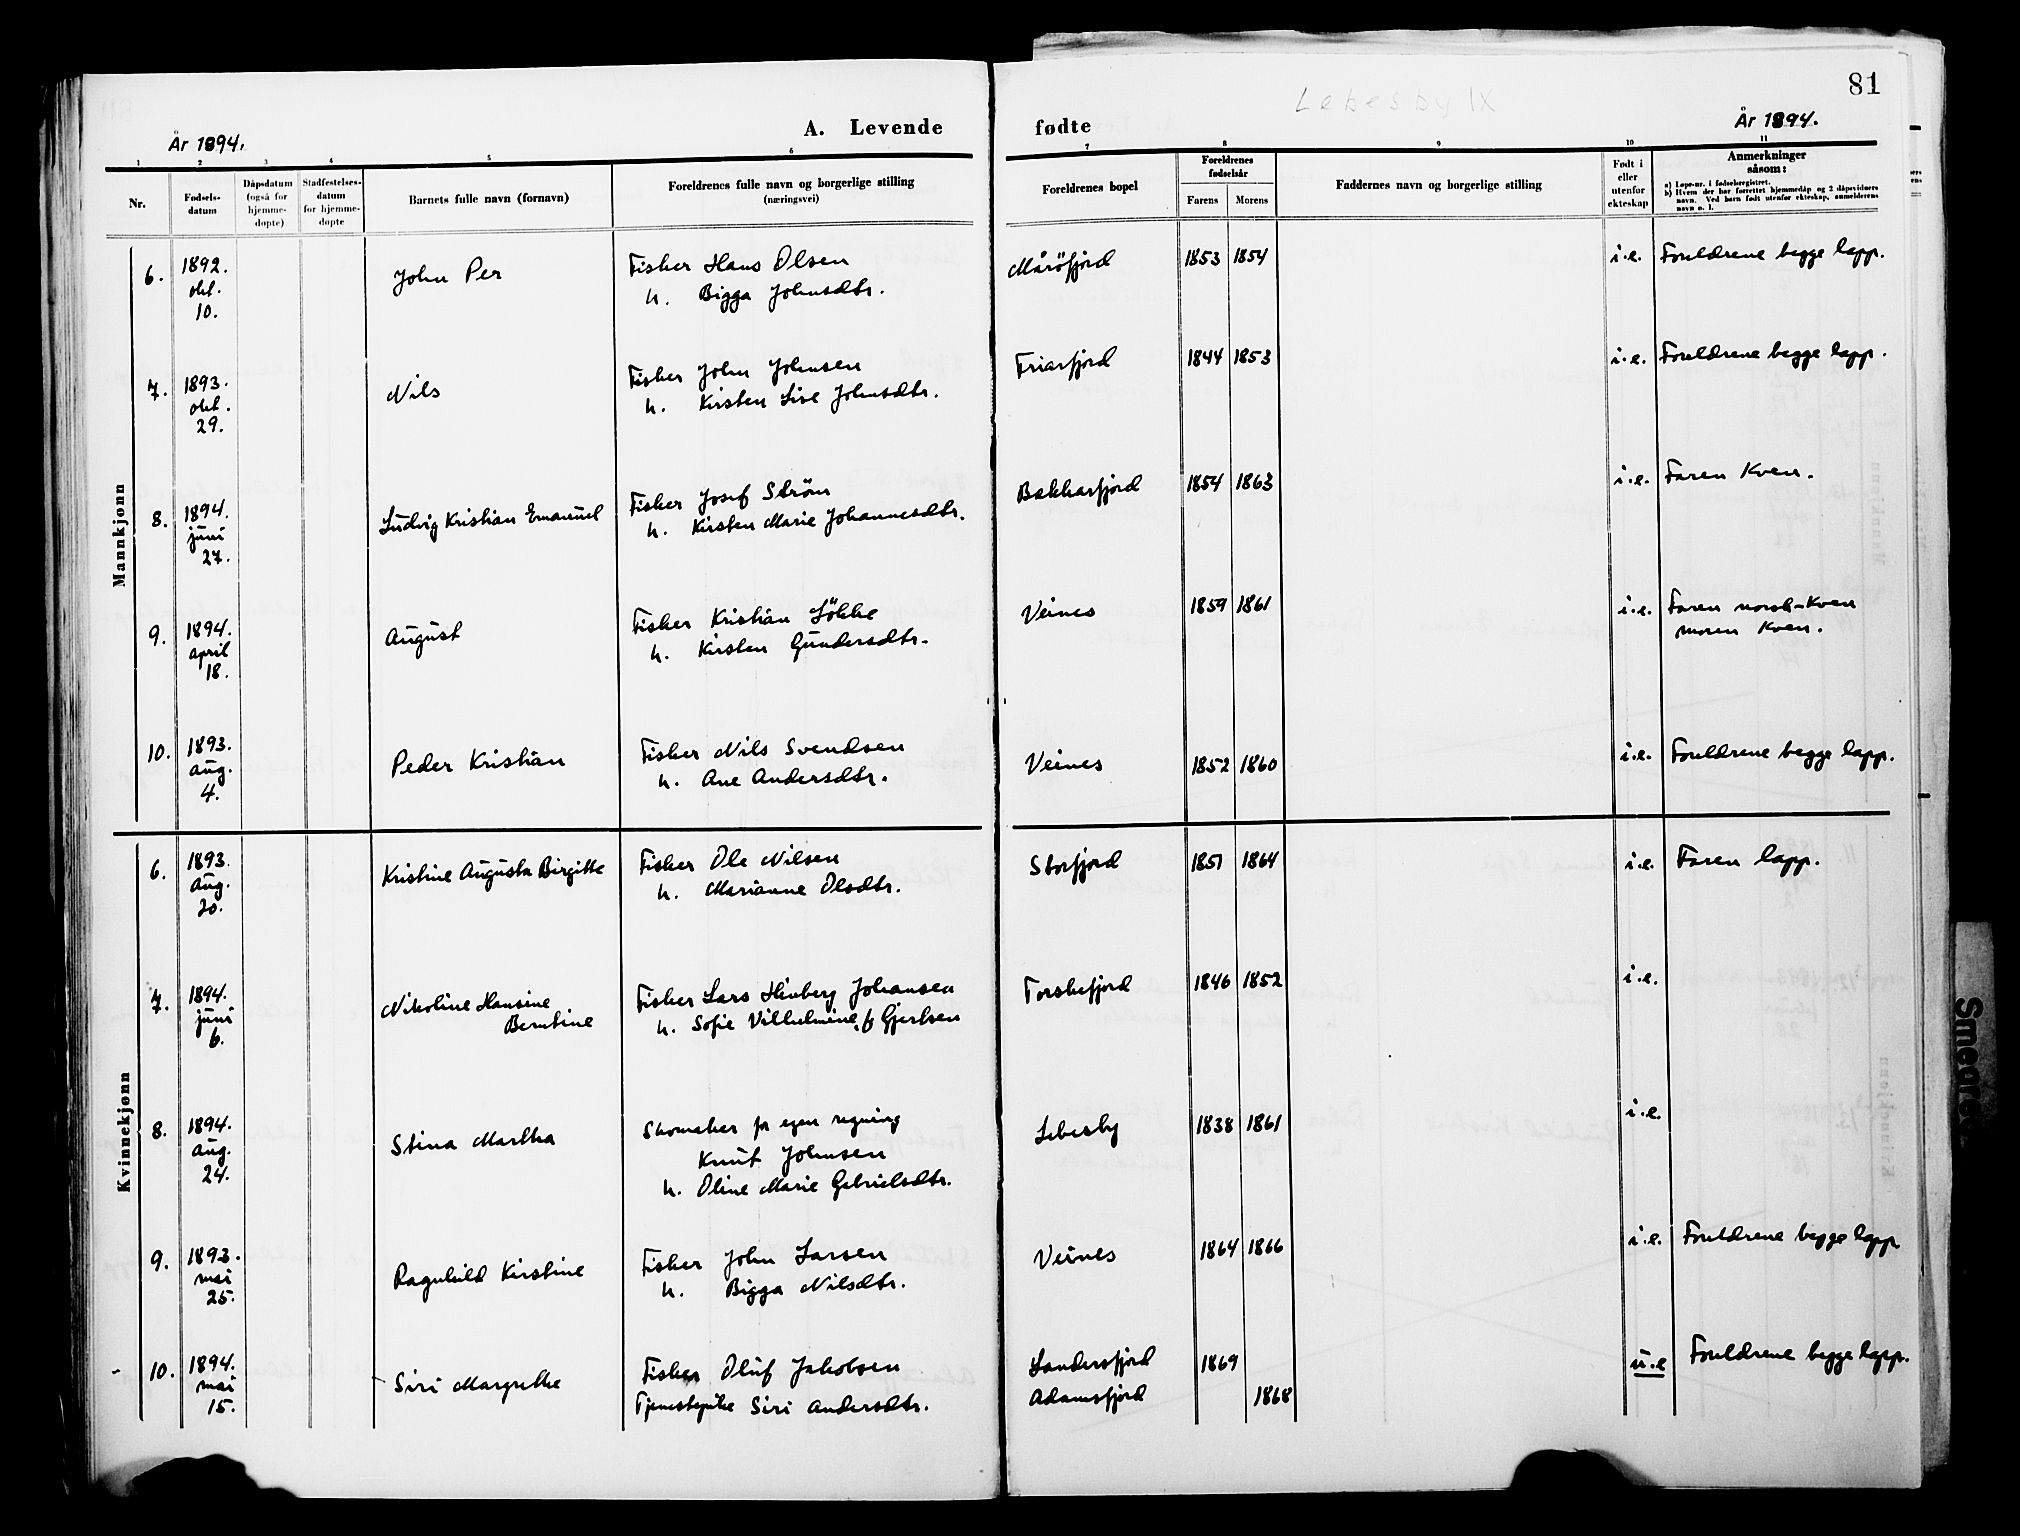 Lebesby IX
81
År 1894.
A. Levende
fødte
År 1894.
1 2 3 4 5 6 7 8 9 10 11
Nr.
Fødsels-
datum
Dåpsdatum
(også for
hjemme-
døpte)
Stadfestelses-
datum
for hjemme-
døpte
Barnets fulle navn (fornavn)
Foreldrenes fulle navn og borgerlige stilling
(næringsvei)
Foreldrenes bopel
Foreldrenes
fødselsår
Farens Morens
Faddernes navn og borgerlige stilling
Født i
eller
utenfor
ekteskap
Anmerkninger
såsom:
a) Løpe-nr. i fødselsregistret.
b) Hvem der har forrettet hjemmedåp og 2 dåpsvidners
navn. Ved barn født utenfor ekteskap, anmelderens
navn o. l.
Mannkjønn
6. 1892. okt. 10. John Per
Fisker Hans Olsen
h. Bigga Johnsdtr.
Mårøfjord 1853 1854 i.e. Foreldrene begge lapp.
7. 1893. okt. 29. Nils
Fisker John Johnsen
h. Kirsten Lise Johnsdtr.
Friarfjord 1844 1853 i.e. Foreldrene begge lapp.
8. 1894. juni 27. Ludvig Kristian Emanuel
Fisker Josef Strøm
h. Kirsten Marie Johannesdtr.
Bekkarfjord 1854 1863 i.e. Faren Kven.
9. 1894. april 18. August
Fisker Kristian Løkke
h. Kirsten Gundersdtr.
Veines 1859 1861 i.e. Faren norsk-Kven
moren Kven.
10. 1893. aug. 4. Peder Kristian
Fisker Nils Svendsen
h. Ane Andersdtr.
Veines 1852 1860 i.e. Foreldrene begge lapp.
Kvinnekjønn
6. 1893. aug. 20. Kristine Augusta Birgitte
Fisker Ole Nilsen
h. Marianne Olsdtr.
Storfjord 1851 1864 i.e. Faren lapp.
7. 1894. juni 6. Nikoline Hansine
Berntine
Fisker Lars Hinberg Johansen
h. Sofie Vilhelmine f. Gjertsen
Torskefjord 1846 1852 i.e.
8. 1894. aug. 24. Stina Martha
Skomaker for egen regning
Knut Johnsen
h. Oline Marie Gabrielsdtr.
Lebesby 1838 1861 i.e.
9. 1893. mai 25. Ragnhild Kirstine
Fisker John Larsen
h. Bigga Nilsdtr.
Veines 1864 1866 i.e. Foreldrene begge lapp
10. 1894. mai 15. Siri Margrethe
Fisker Oluf Jakobsen
Tjenestepike Siri Andersdtr.
Landersfjord 1869
Adamsfjord 1868
u.e Foreldrene begge lapp.